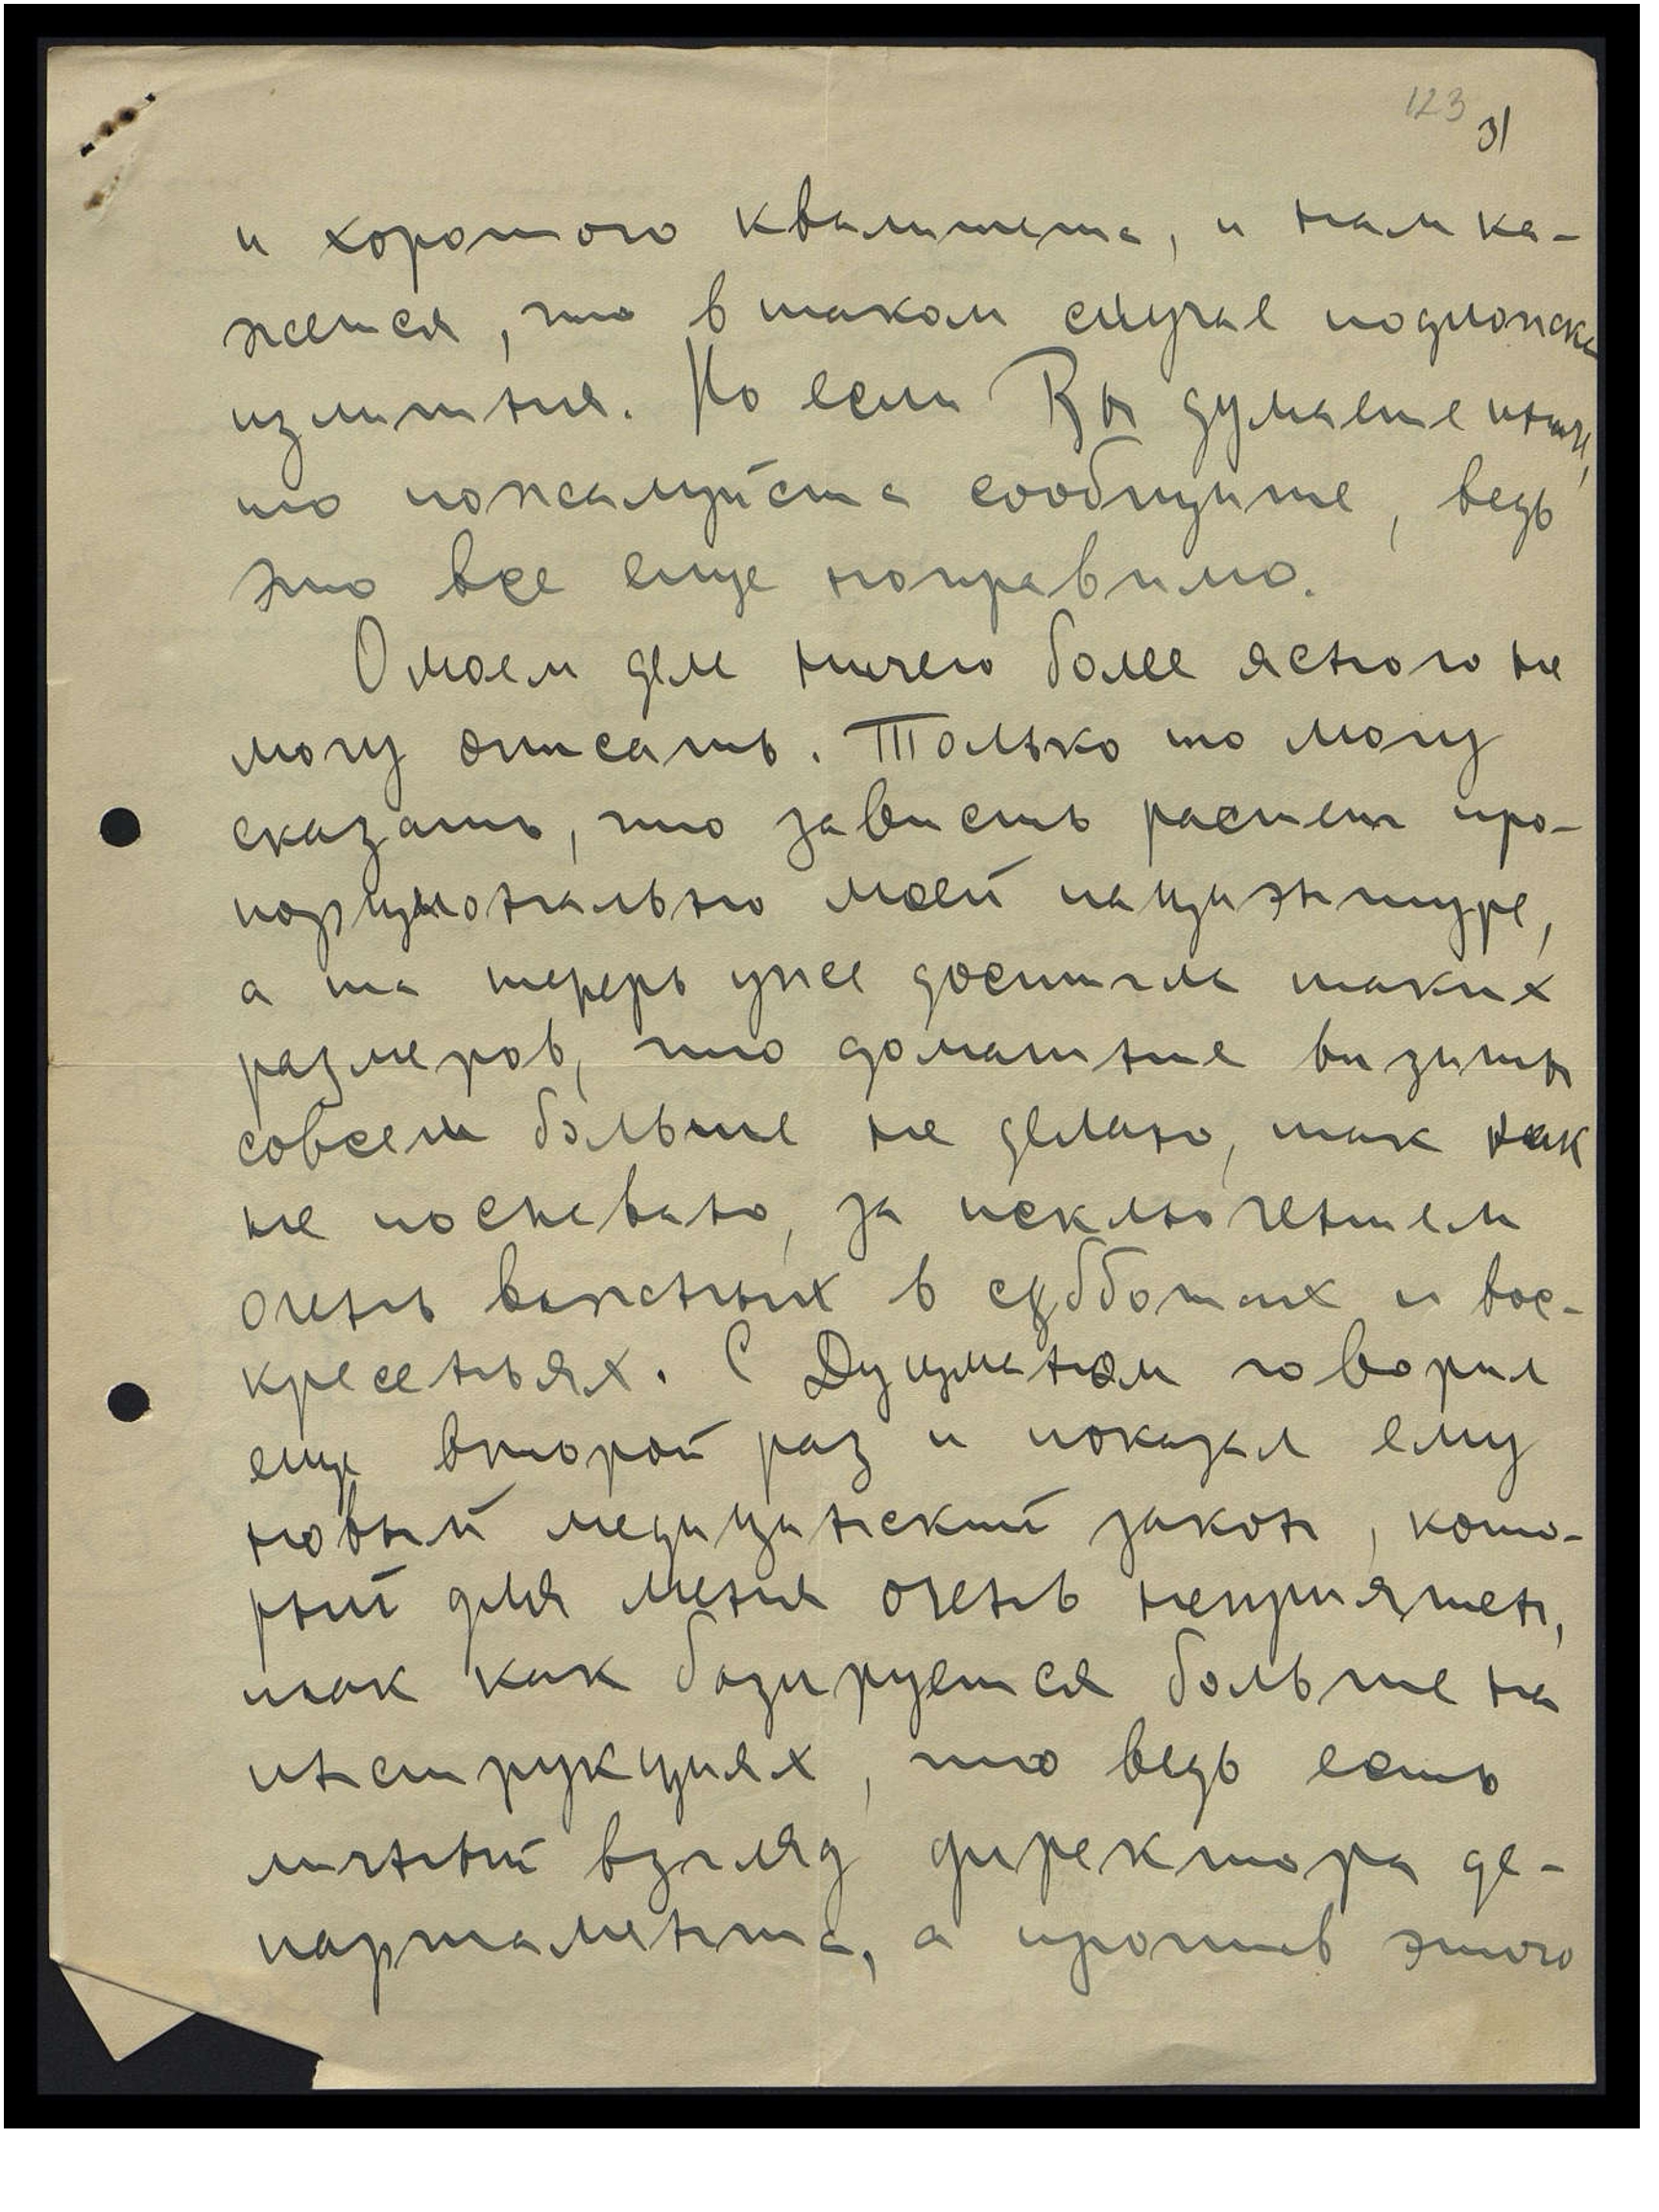 123
31
и хорошого квалитета, и нам ка-
жется, что в таком случае подложка
излишня. Но если Вы думаете иначе,
то пожалуйста сообщите, ведь
это все еще поправимо.
О моем деле ничего более ясного не
могу описать. Только то могу
сказать, что зависть растет про-
порционально моей пациэнтуре,
а та теперь уже достигла таких
размеров, что домашние визиты
совсем больше не делаю, так как
не поспеваю, за исключением
очень важных в субботах и вос-
кресеньях. С Дуцманом говорил
еще второй раз и показал ему
новый медицинский закон, кото-
рый для меня очень неприятен,
так как базируется больше на
инструкциях, что ведь есть
личный взгляд директора де-
партамента, а против этого